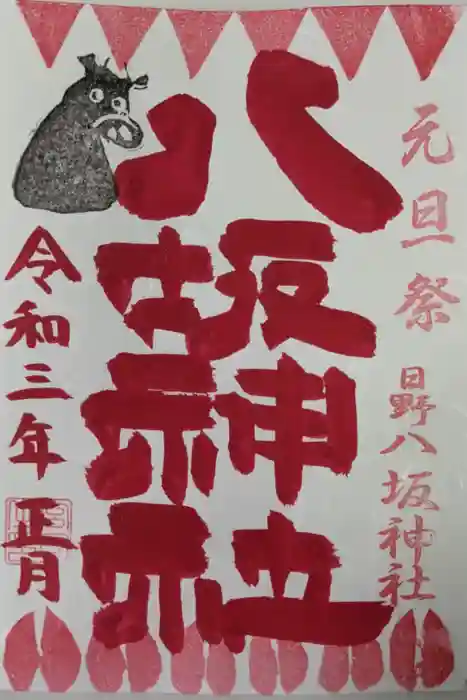 元旦祭
日野八坂神社
八坂神社
令和三年 正月